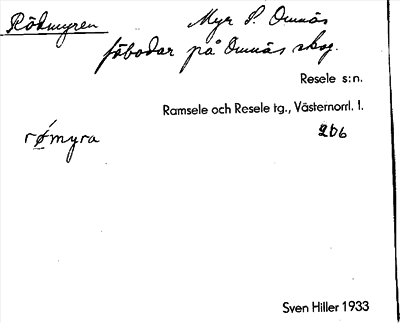 Rödmyren Myr S. Omnäs
fäbodar på Omnäs skog.
Resele s:n.
Ramsele och Resele tg., Västernorrl. l.
206
rǿmyra
Sven Hiller 1933